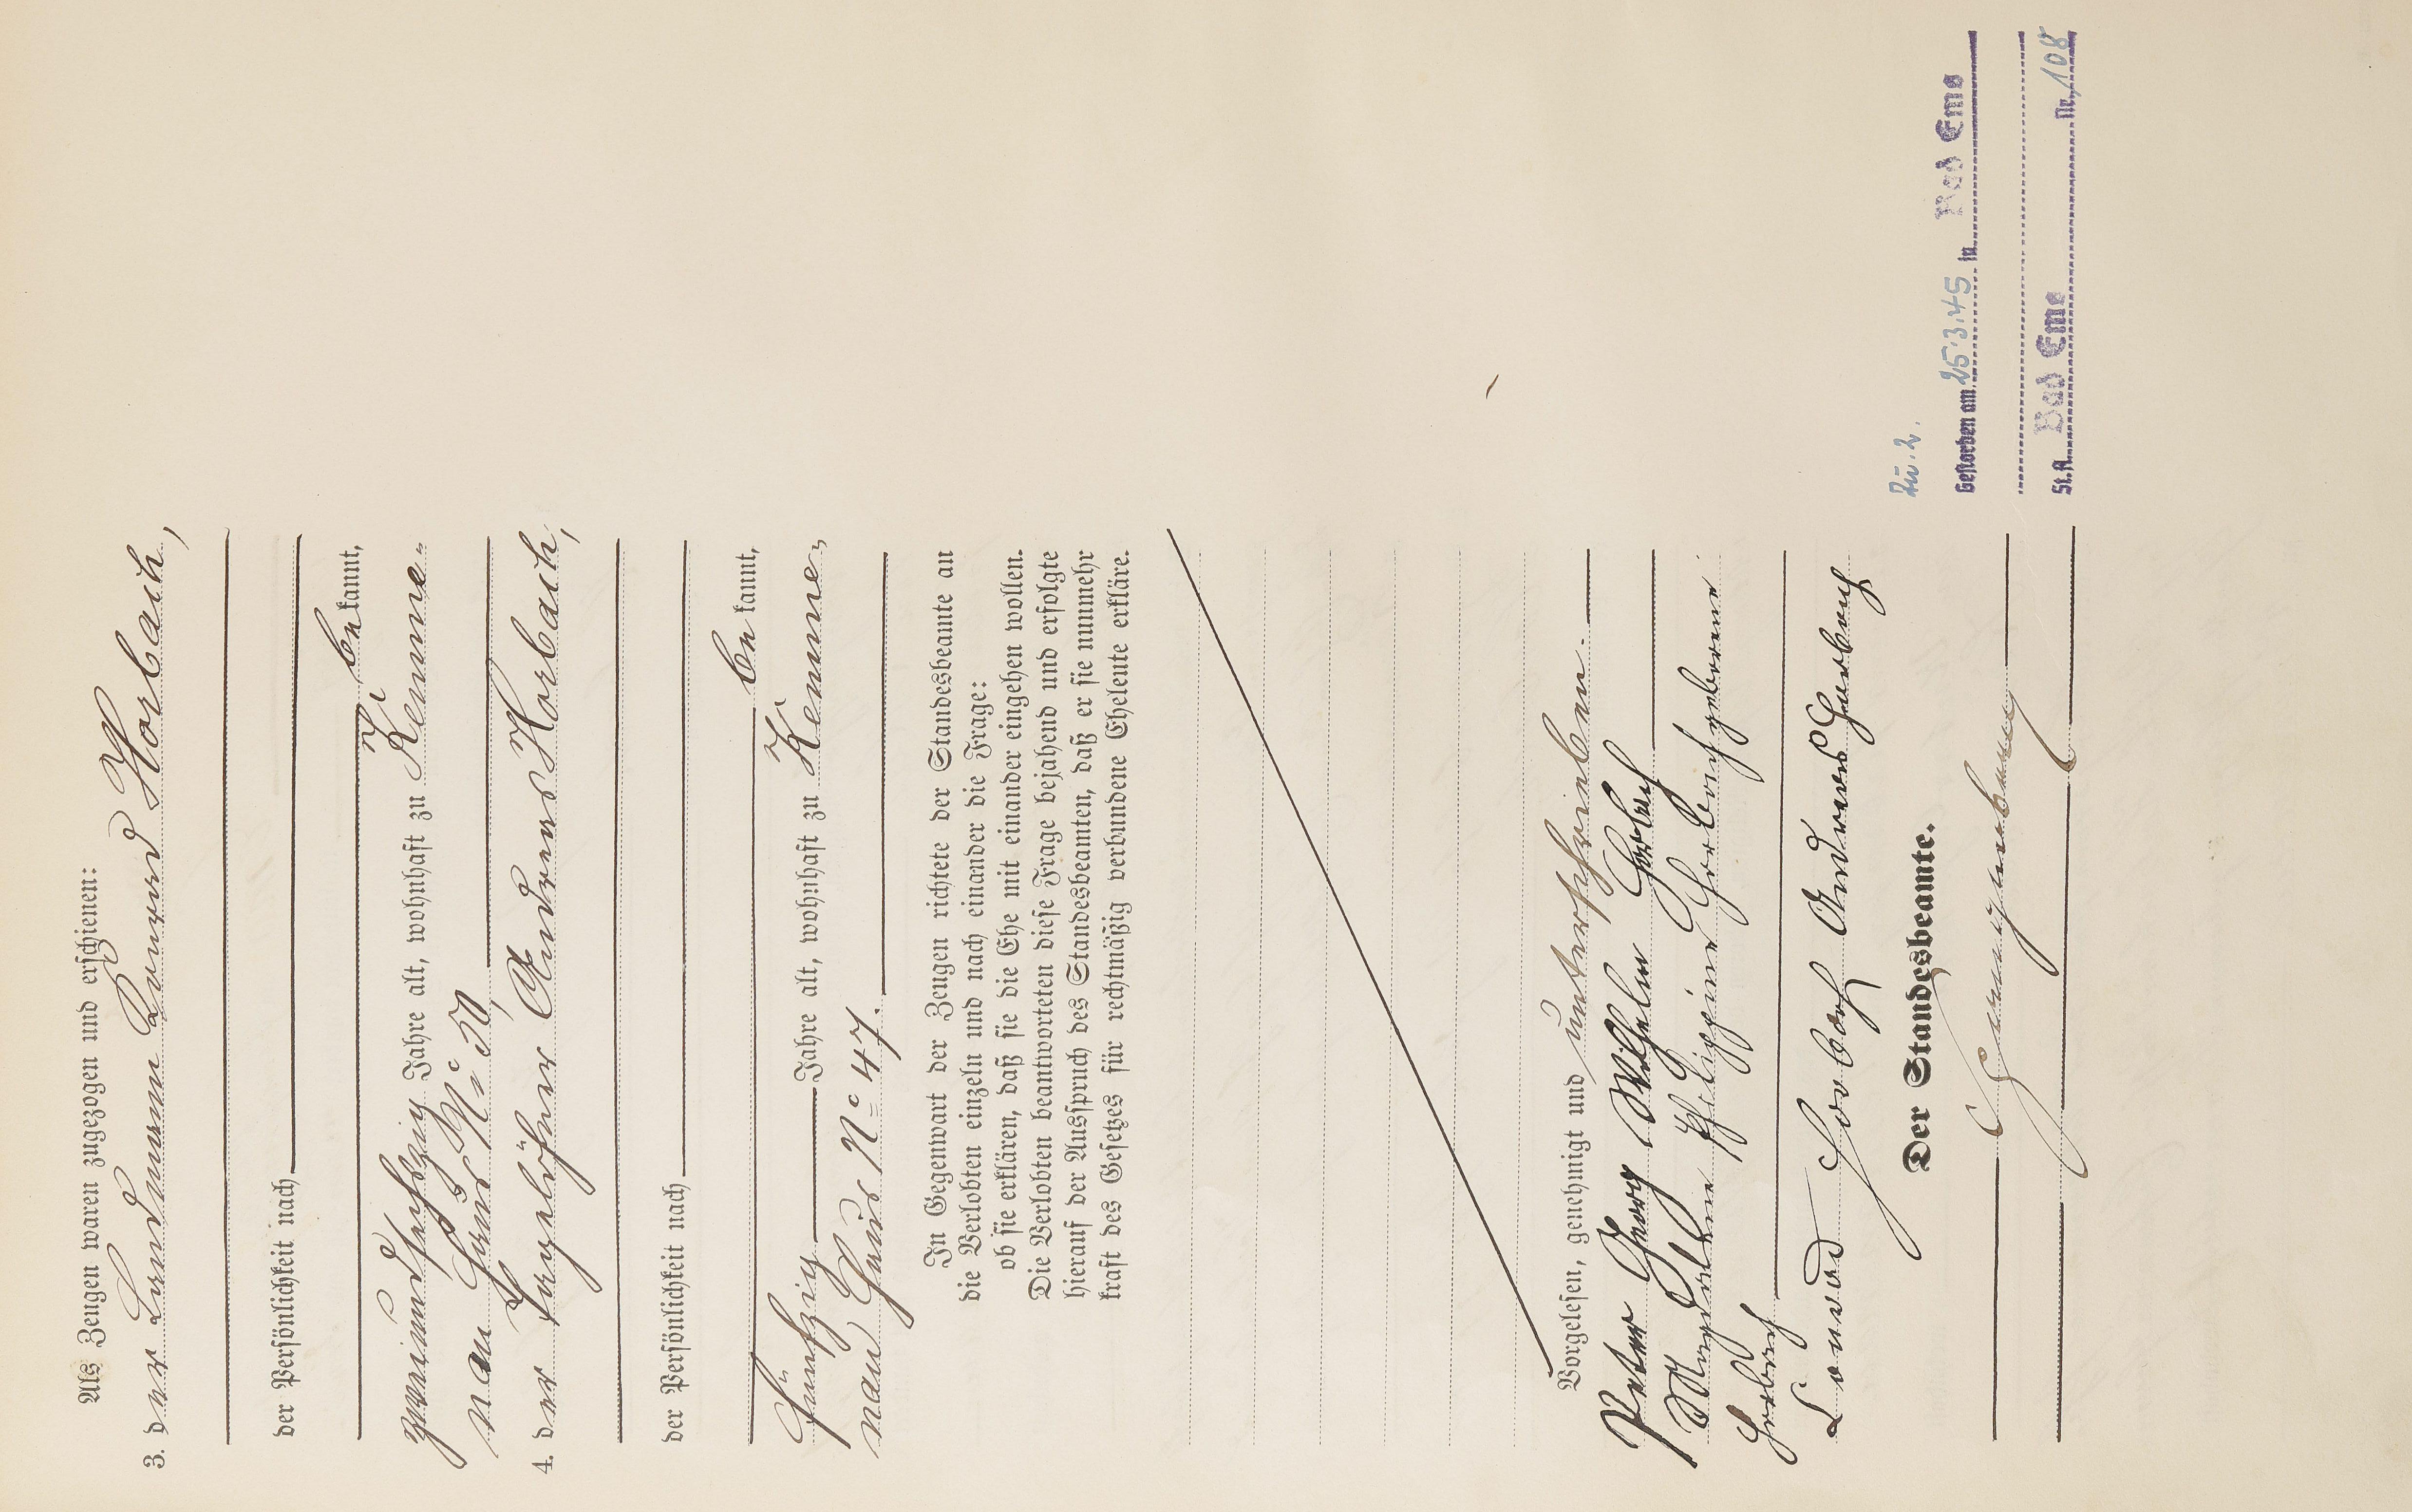 Als Zeugen waren zugezogen und erschienen:
3. der Landmann Leonard Horbach,
der Persönlichkeit nach
bekannt,
zweiundsechzig Jahre alt, wohnhaft zu Kemme-
nau Haus No 50
4. der Tagelöhner Andreas Horbach,
der Persönlichkeit nach
bekannt,
fünfzig Jahre alt, wohnhaft zu Kemme-
nau, Haus No 47.
In Gegenwart der Zeugen richtete der Standesbeamte an
die Verlobten einzeln und nach einander die Frage:
ob sie erklären, daß sie die Ehe mit einander eingehen wollen.
Die Verlobten beantworteten diese Frage bejahend und erfolgte
hierauf der Ausspruch des Standesbeamten, daß er sie nunmehr
kraft des Gesetzes für rechtmäßig verbundene Eheleute erkläre.
Vorgelesen, genehmigt und unterschrieben.
Peter Georg Wilhelm Horbach
Magdalene Philippine Horbach geborene
Horbach
Lonard Horbach Andreas Horbach
Der Standesbeamte.
Zu. 2.
Gestorben am 25.3.45 in Bad Ems
St.A. Bad Ems Nr. 108